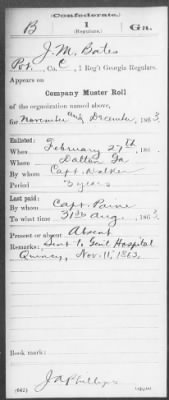 (Confederate.)
B 1 Ga.
(Regulars.)
J. M. Bates
Pvt., Co. C, 1 Reg't Georgia Regulars.
Appears on
Company Muster Roll
of the organization named above,
for November and December, 1863
Enlisted:
When February 27th, 186
Where Dalton Ga
By whom Capt. Walker
Period 3 years
Last paid:
By whom Capt. Paine
To what time 31st Aug, 1863
Present or absent Absent
Remarks: Sent to Genl Hospital
Quincy, Nov. 11, 1863.
Book mark:
J A Phillips
(642)